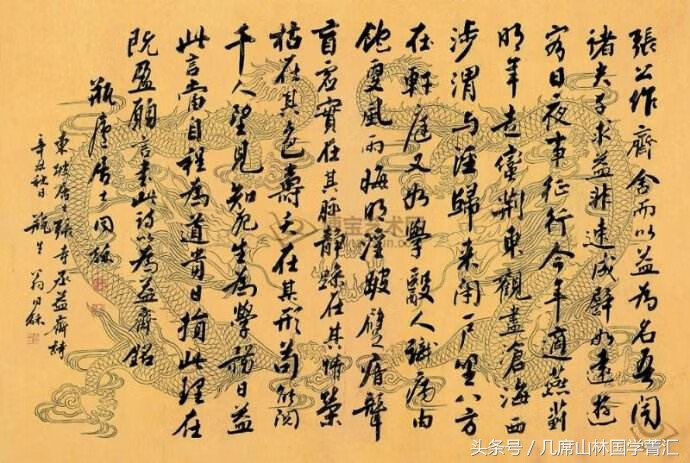 張公作齊舍而以益為名吾聞
諸夫子求益非速成譬如遠遊
客日夜事征行今年適燕薊
明年走蠻荆東觀盡滄海西
涉渭與涇歸來閉户坐八方
在軒庭又如學醫人識病由
飽更風雨晦明淫跛躄瘖聾
盲虛實在其脈靜躁在其情榮
枯在其色壽夭在其形苟能閱
千人望見知死生為學務日益
此言當自程為道貴日損此理在
既盈願言書此詩以為益齋銘
瓶廬居士同龢
東坡居士張寺丞益齋詩
辛丑秋日 瓶生 翁同龢
头条号/几席山林国学菁汇